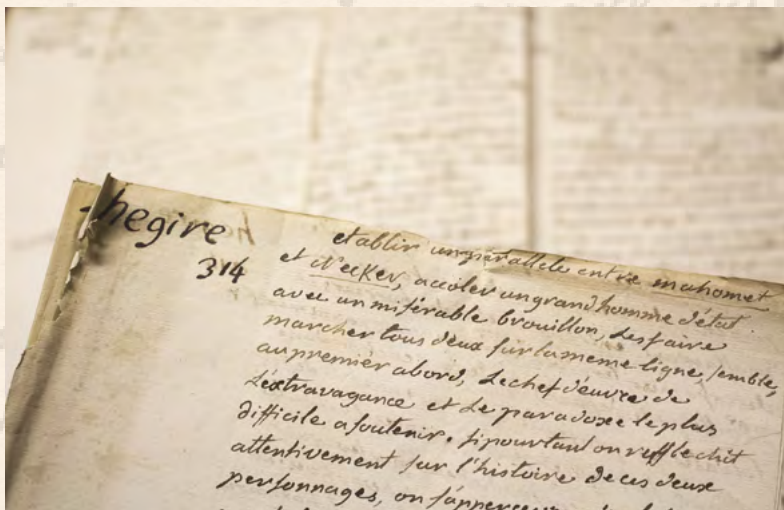 hegire
314
etablir un parallele entre mahomet
et Necker, accoler un grand homme d'état
avec un misérable brouillon, les faire
marcher tous deux sur la meme ligne, semble,
au premier abord, le chef d'œuvre de
L'éxtravagance et Le paradoxe le plus
difficile a soutenir. si pourtant on reflechit
attentivement sur l'histoire de ces deux
personnages, on s'apperçevra